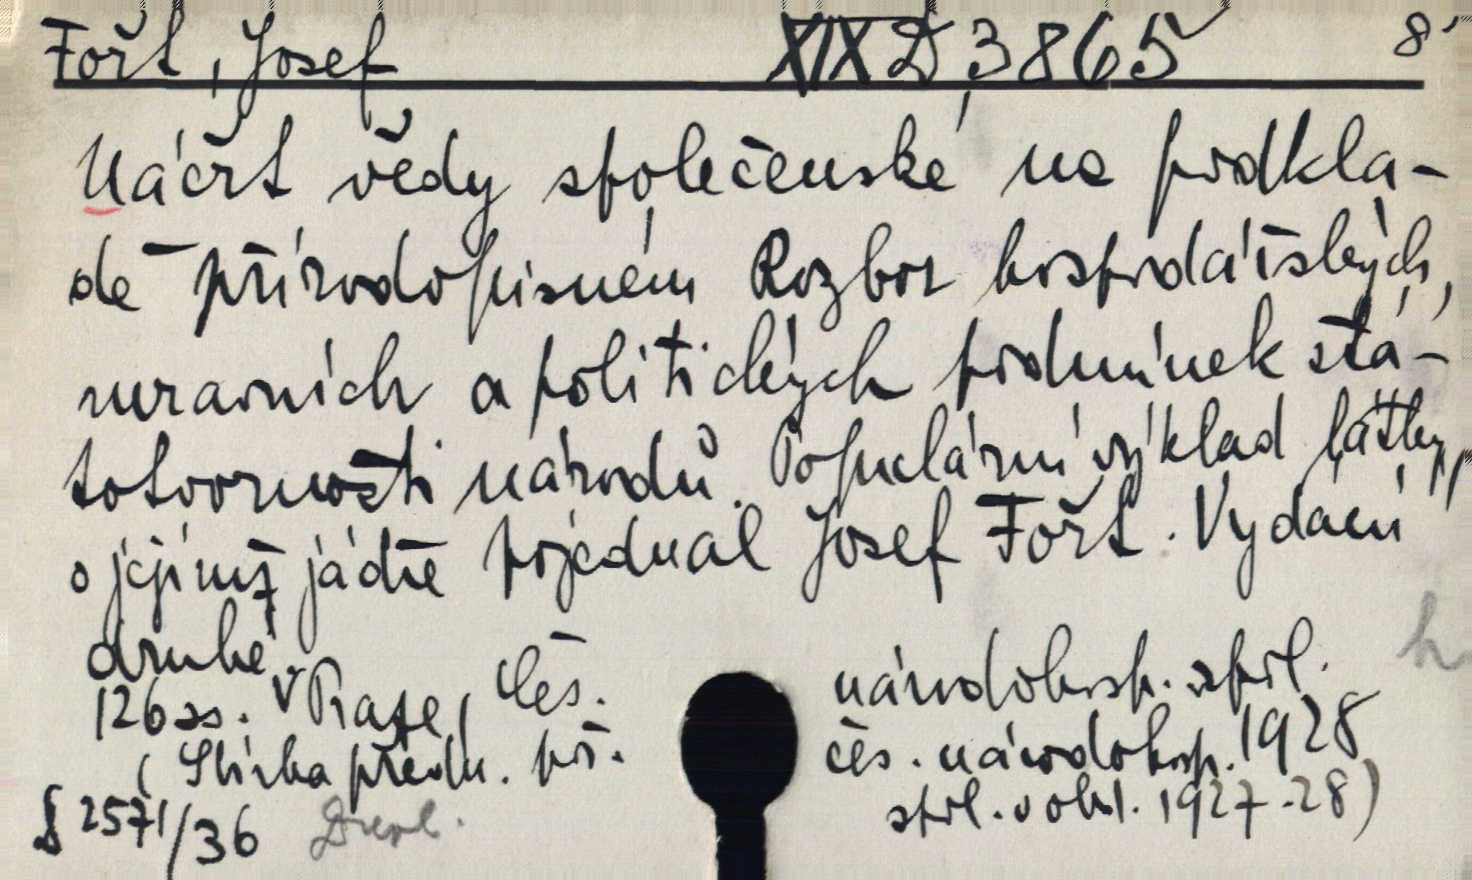 Fořt, Josef XIX D 3865 8'
Náčrt vědy společenské na podkla-
dě přírodopisném Rozbor hospodářských,
mravních a politických podmínek stá-
totvornosti národů. Populární výklad látky,
o jejímž jádře pojednal Josef Fořt. Vydání
druhé
126 ss. v Praze, Čes. národohosp. spol. 1928
(Sbírka předn. poř. čes. národohosp.
spol. v obd. 1927-28)
§ 2571/36 Dupl.